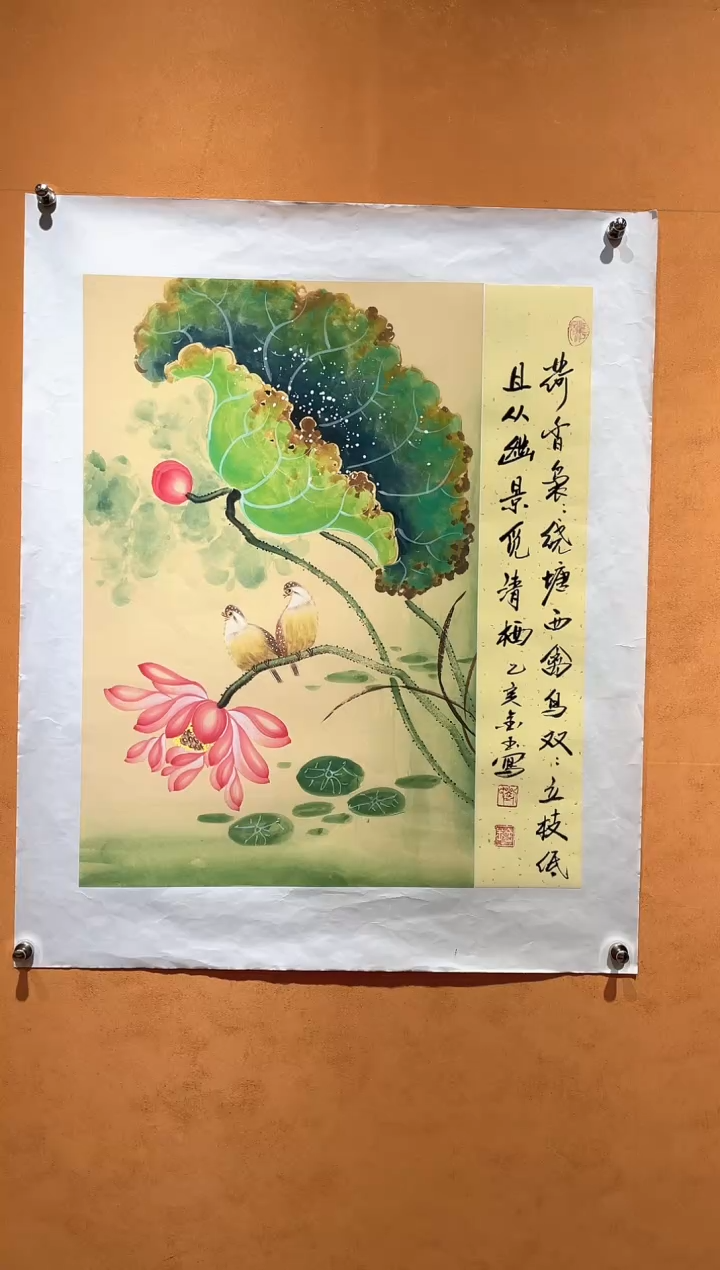 荷香袅々绕塘西禽鸟双々立枝低
且从幽景觅清栖 乙亥金玉写